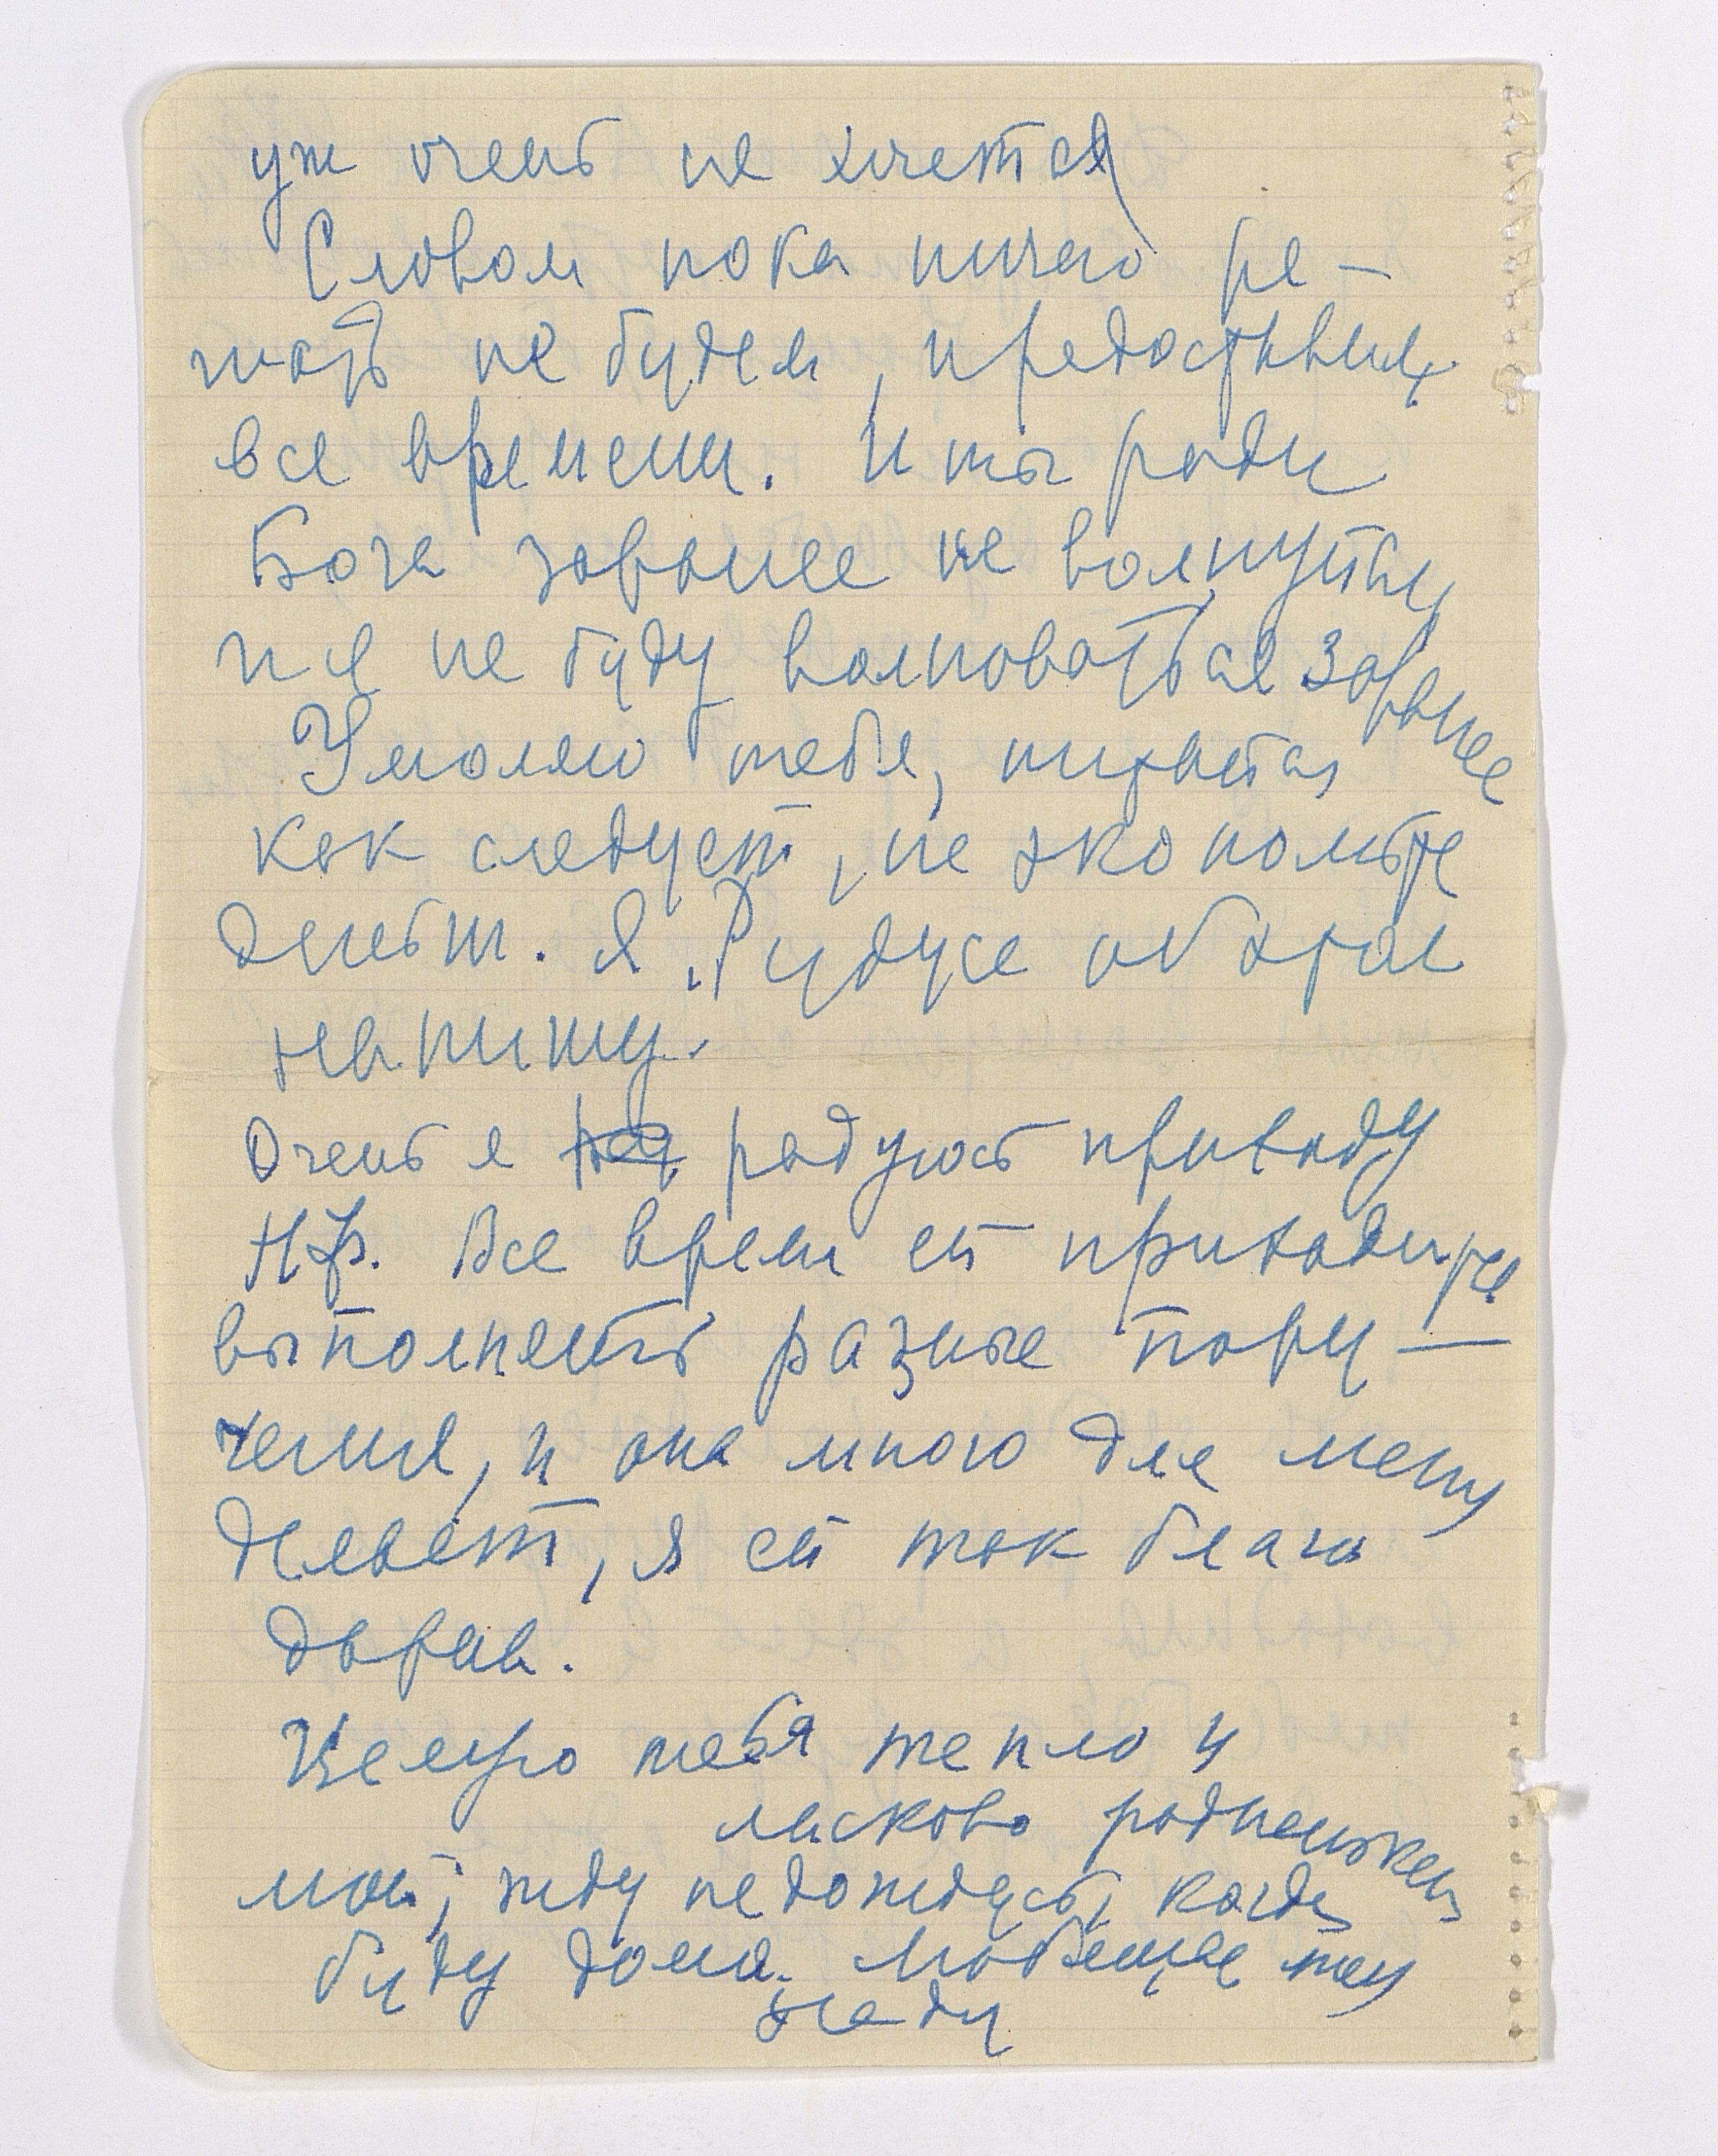 уж очень не хочется)
Словом пока ничего ре-
шать не будем, предоставим
все времени. И ты ради
Бога заранее не волнуйся,
и я не буду волноваться заранее
Умоляю тебя, питайся
как следует, не экономьте
денег. Я Дидусе об этом
напишу.
Очень я радуюсь приходу
НФ. Все время ей приходится
выполнять разные пору-
чения, и она много для меня
делает, я ей так благо
дарна.
Целую тебя тепло и
ласково родненький
мой, жду не дождусь, когда
буду дома. Любящая тебя
Надя